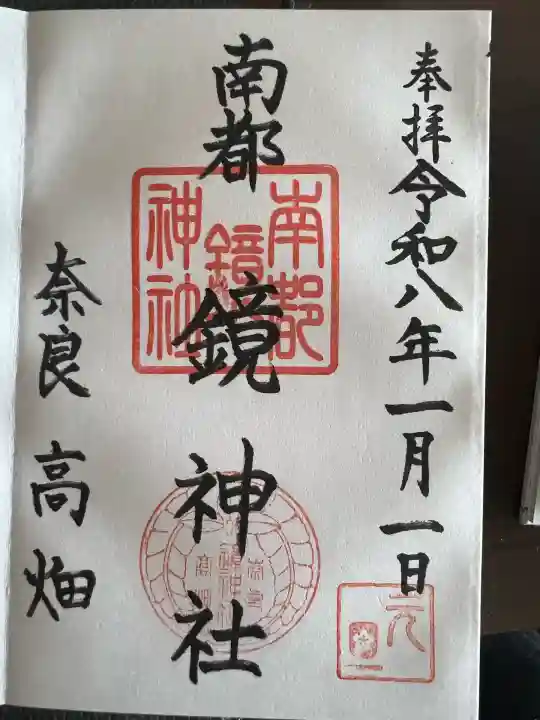 奉拝 令和八年一月一日
南都 鏡神社
奈良 高畑
南都
鏡
神社
元